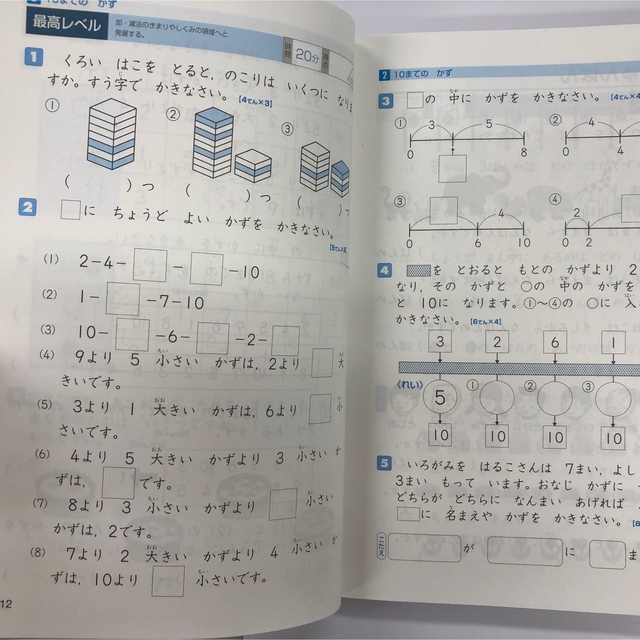 10までの かず
最高レベル
加・減法のきまりやしくみの領域へと
発展する。
20分
1 くろい はこを とると，のこりは いくつに なりま
すか。すう字で かきなさい。 [4てん×3]
① ② ③
( )つ ( )つ ( )つ
2 □に ちょうど よい かずを かきなさい。
(1) 2-4-□-□-10
(2) 1-□-7-10
(3) 10-□-6-□-2-□
(4) 9より 5 小さい かずは，2より □ 大
きいです。
(5) 3より 1 大きい かずは，6より □ 小
さいです。
(6) 4より 5 大きい かずより 3 小さい か
ずは，□です。
(7) 8より 3 小さい かずより □ 小さい
かずは，2です。
(8) 7より 2 大きい かずより 4 小さい か
ずは，10より □ 小さいです。
12
2 10までの かず
3 □の 中に かずを かきなさい。
① 3 5 ②
0 8 0 4
③ ④ 2
0 6 10 0 2
4 を とおると もとの かずより 2
なり，その かずと ○の 中の かずを
と 10に なります。①～④の ○に 入
かきなさい。 [6てん×4]
3 2 6 1
(れい) 5 ① ② ③
10 10 10 10
5 いろがみを はるこさんは 7まい，よし
3まい もって います。おなじ かずに
どちらが どちらに なんまい あげれば
□に 名まえや かずを かきなさい。
こたえ が に ま